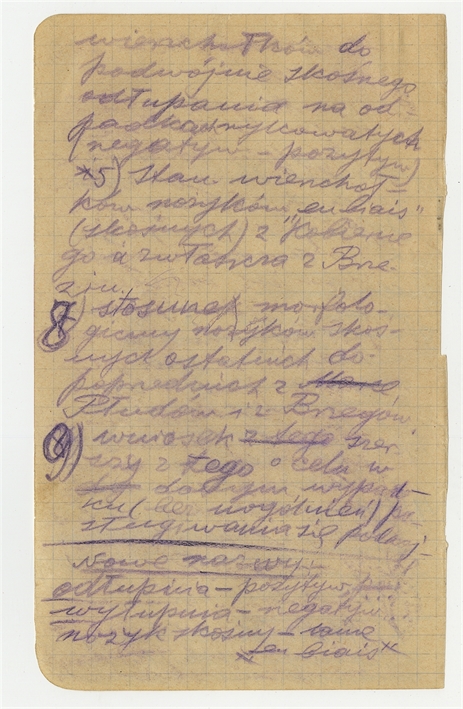 wierzchołków do
podwójnie skośnego
odłupania na od-
padkach rylcowatych
(negatyw - pozytyw)
*5) Stan wierzchoł-
ków nożyków "en biais"
(skośnych) z "Kobiernе
go a zwłaszcza z Brze-
ziu.
8) stosunek morfolo-
giczny nożyków skoś-
nych ostatnich do
poprzednich z
Płudów i z Brzegów.
9) wniosek z tego szer
szy z tego o celu w
danym wypad-
ku (bez uogólnień)
sługiwania się
Nowe nazwy:
odłupnia - pozytyw,
wyłupnia - negatyw
nożyk skośny - lame
"en biais"